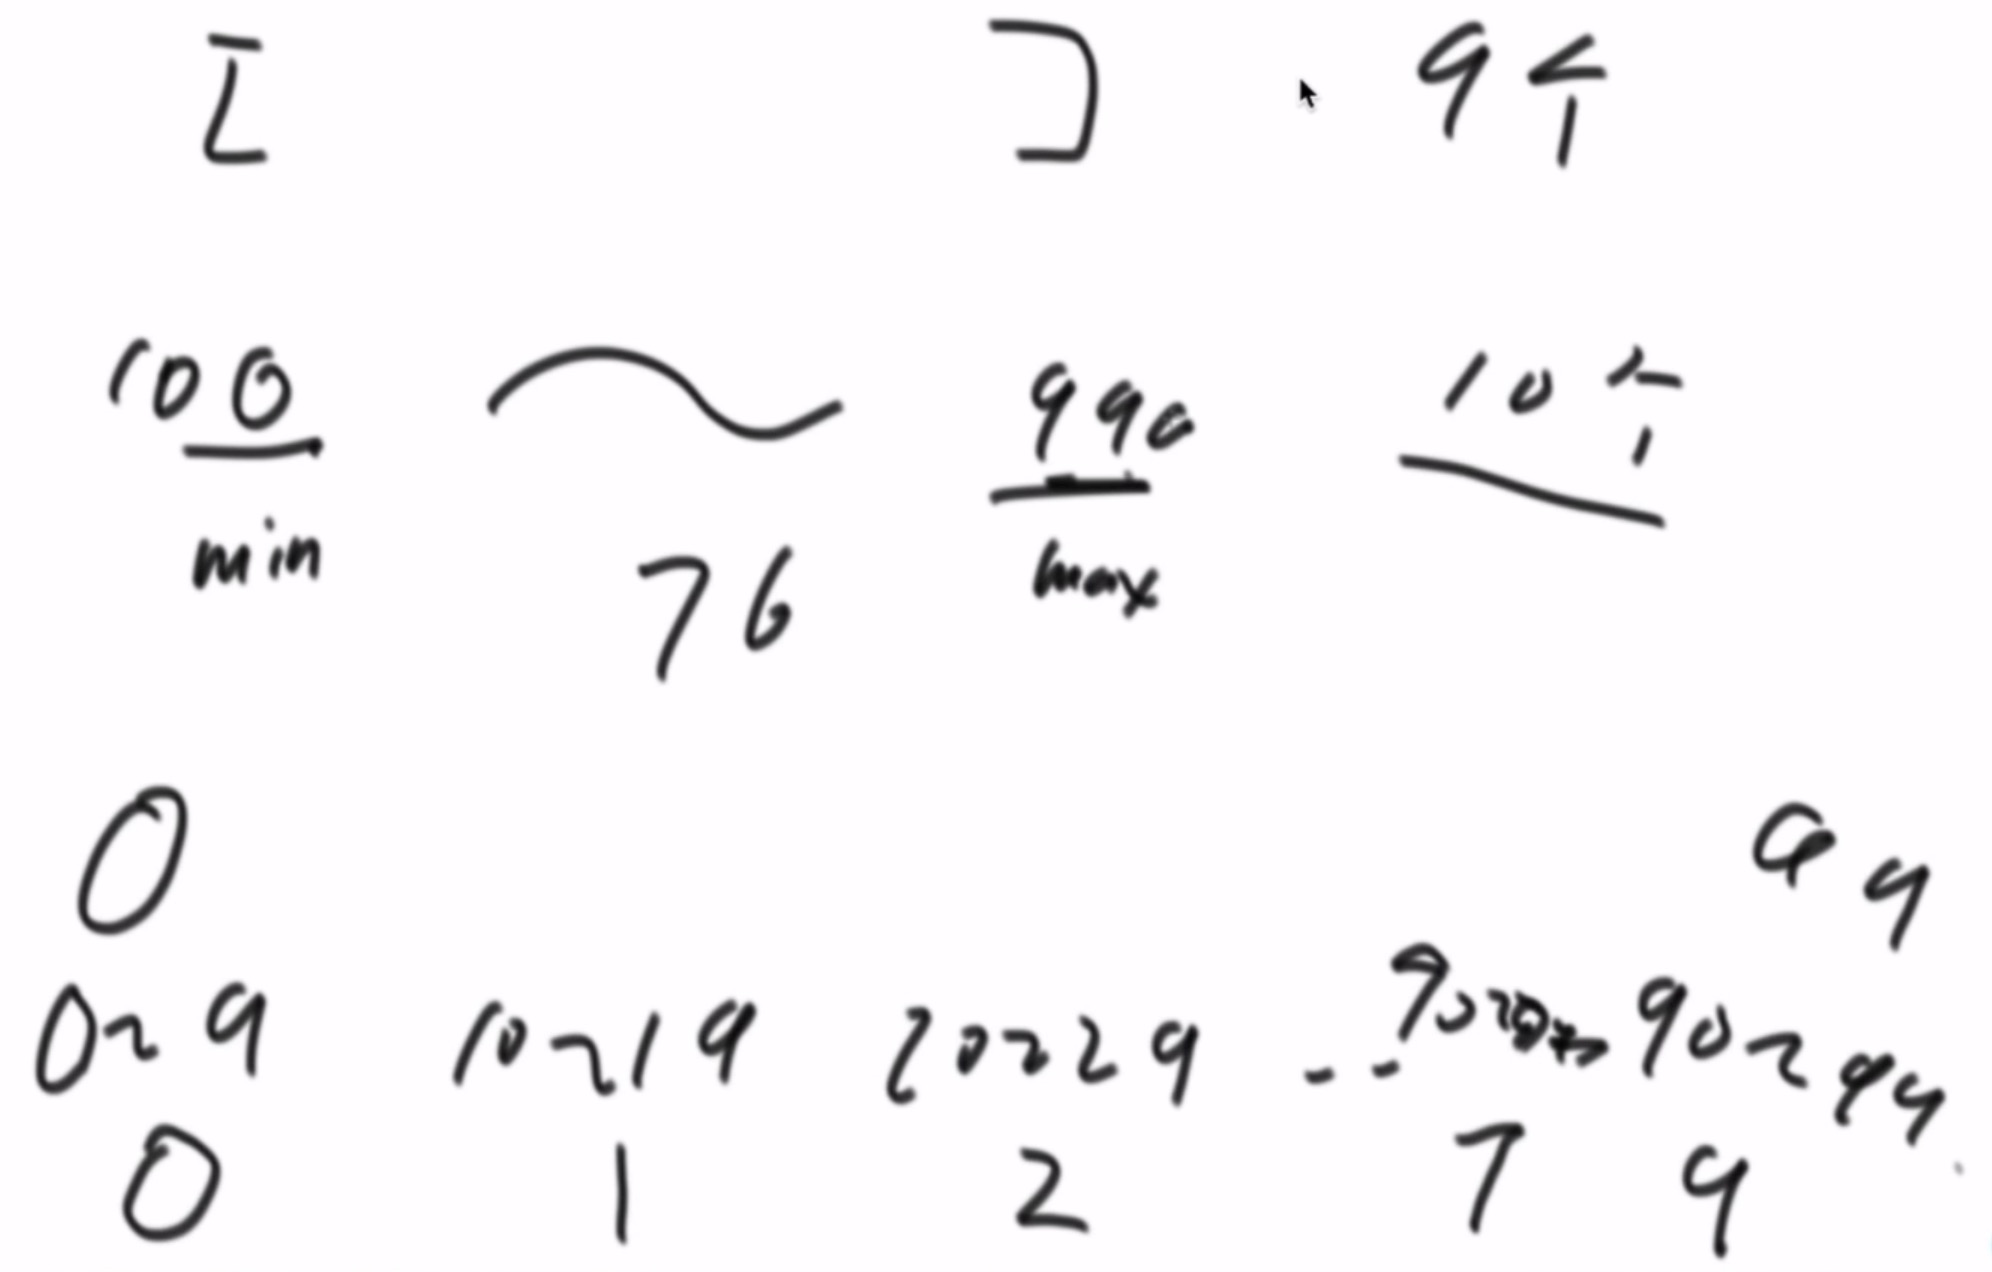 [ ] 9个
100 ~ 990 10个
min 76 max
0 99
0~9 10~19 20~29 -- 70~ 90~99
0 1 2 7 9